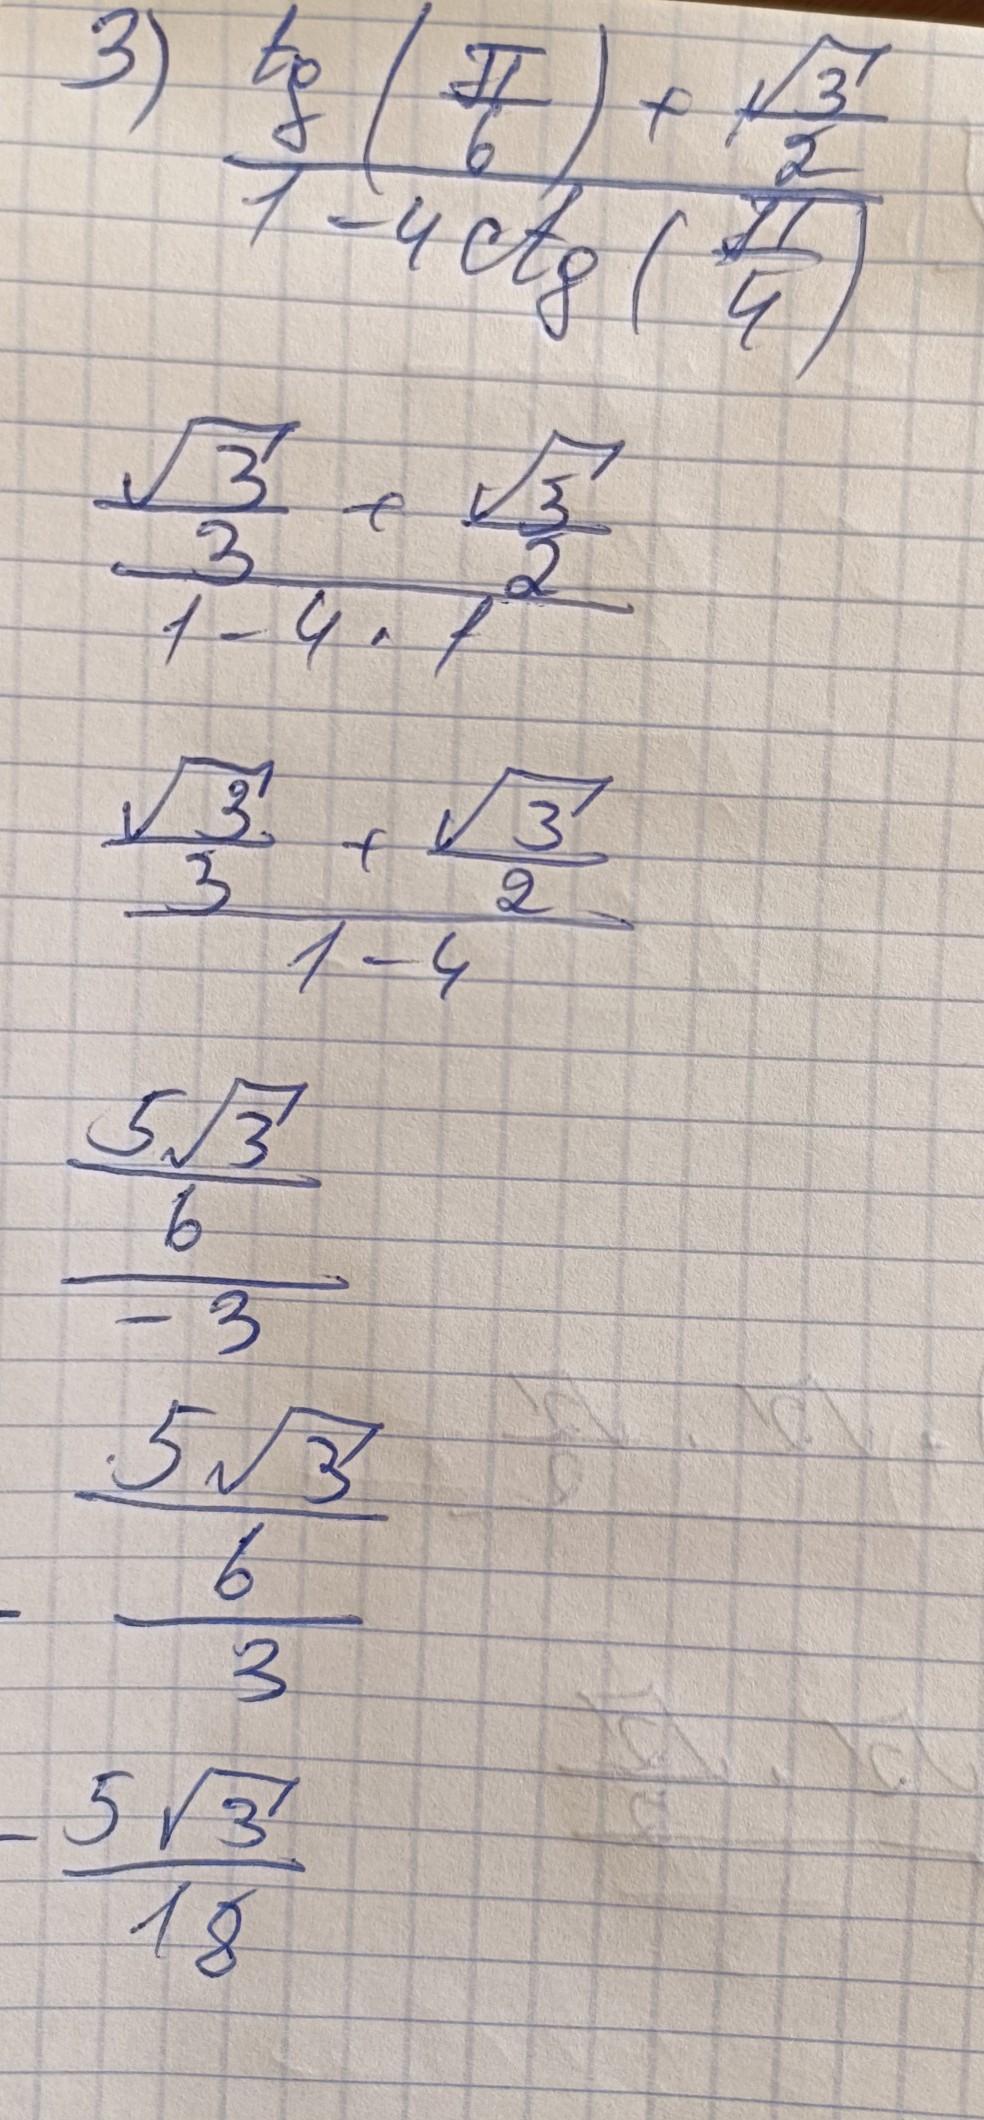 3) (tg(π/6) + √3/2) / (1 - 4ctg(π/4))
(√3/3 + √3/2) / (1 - 4 · 1)
(√3/3 + √3/2) / (1 - 4)
(5√3/6) / (-3)
- (5√3/6) / 3
- 5√3/18